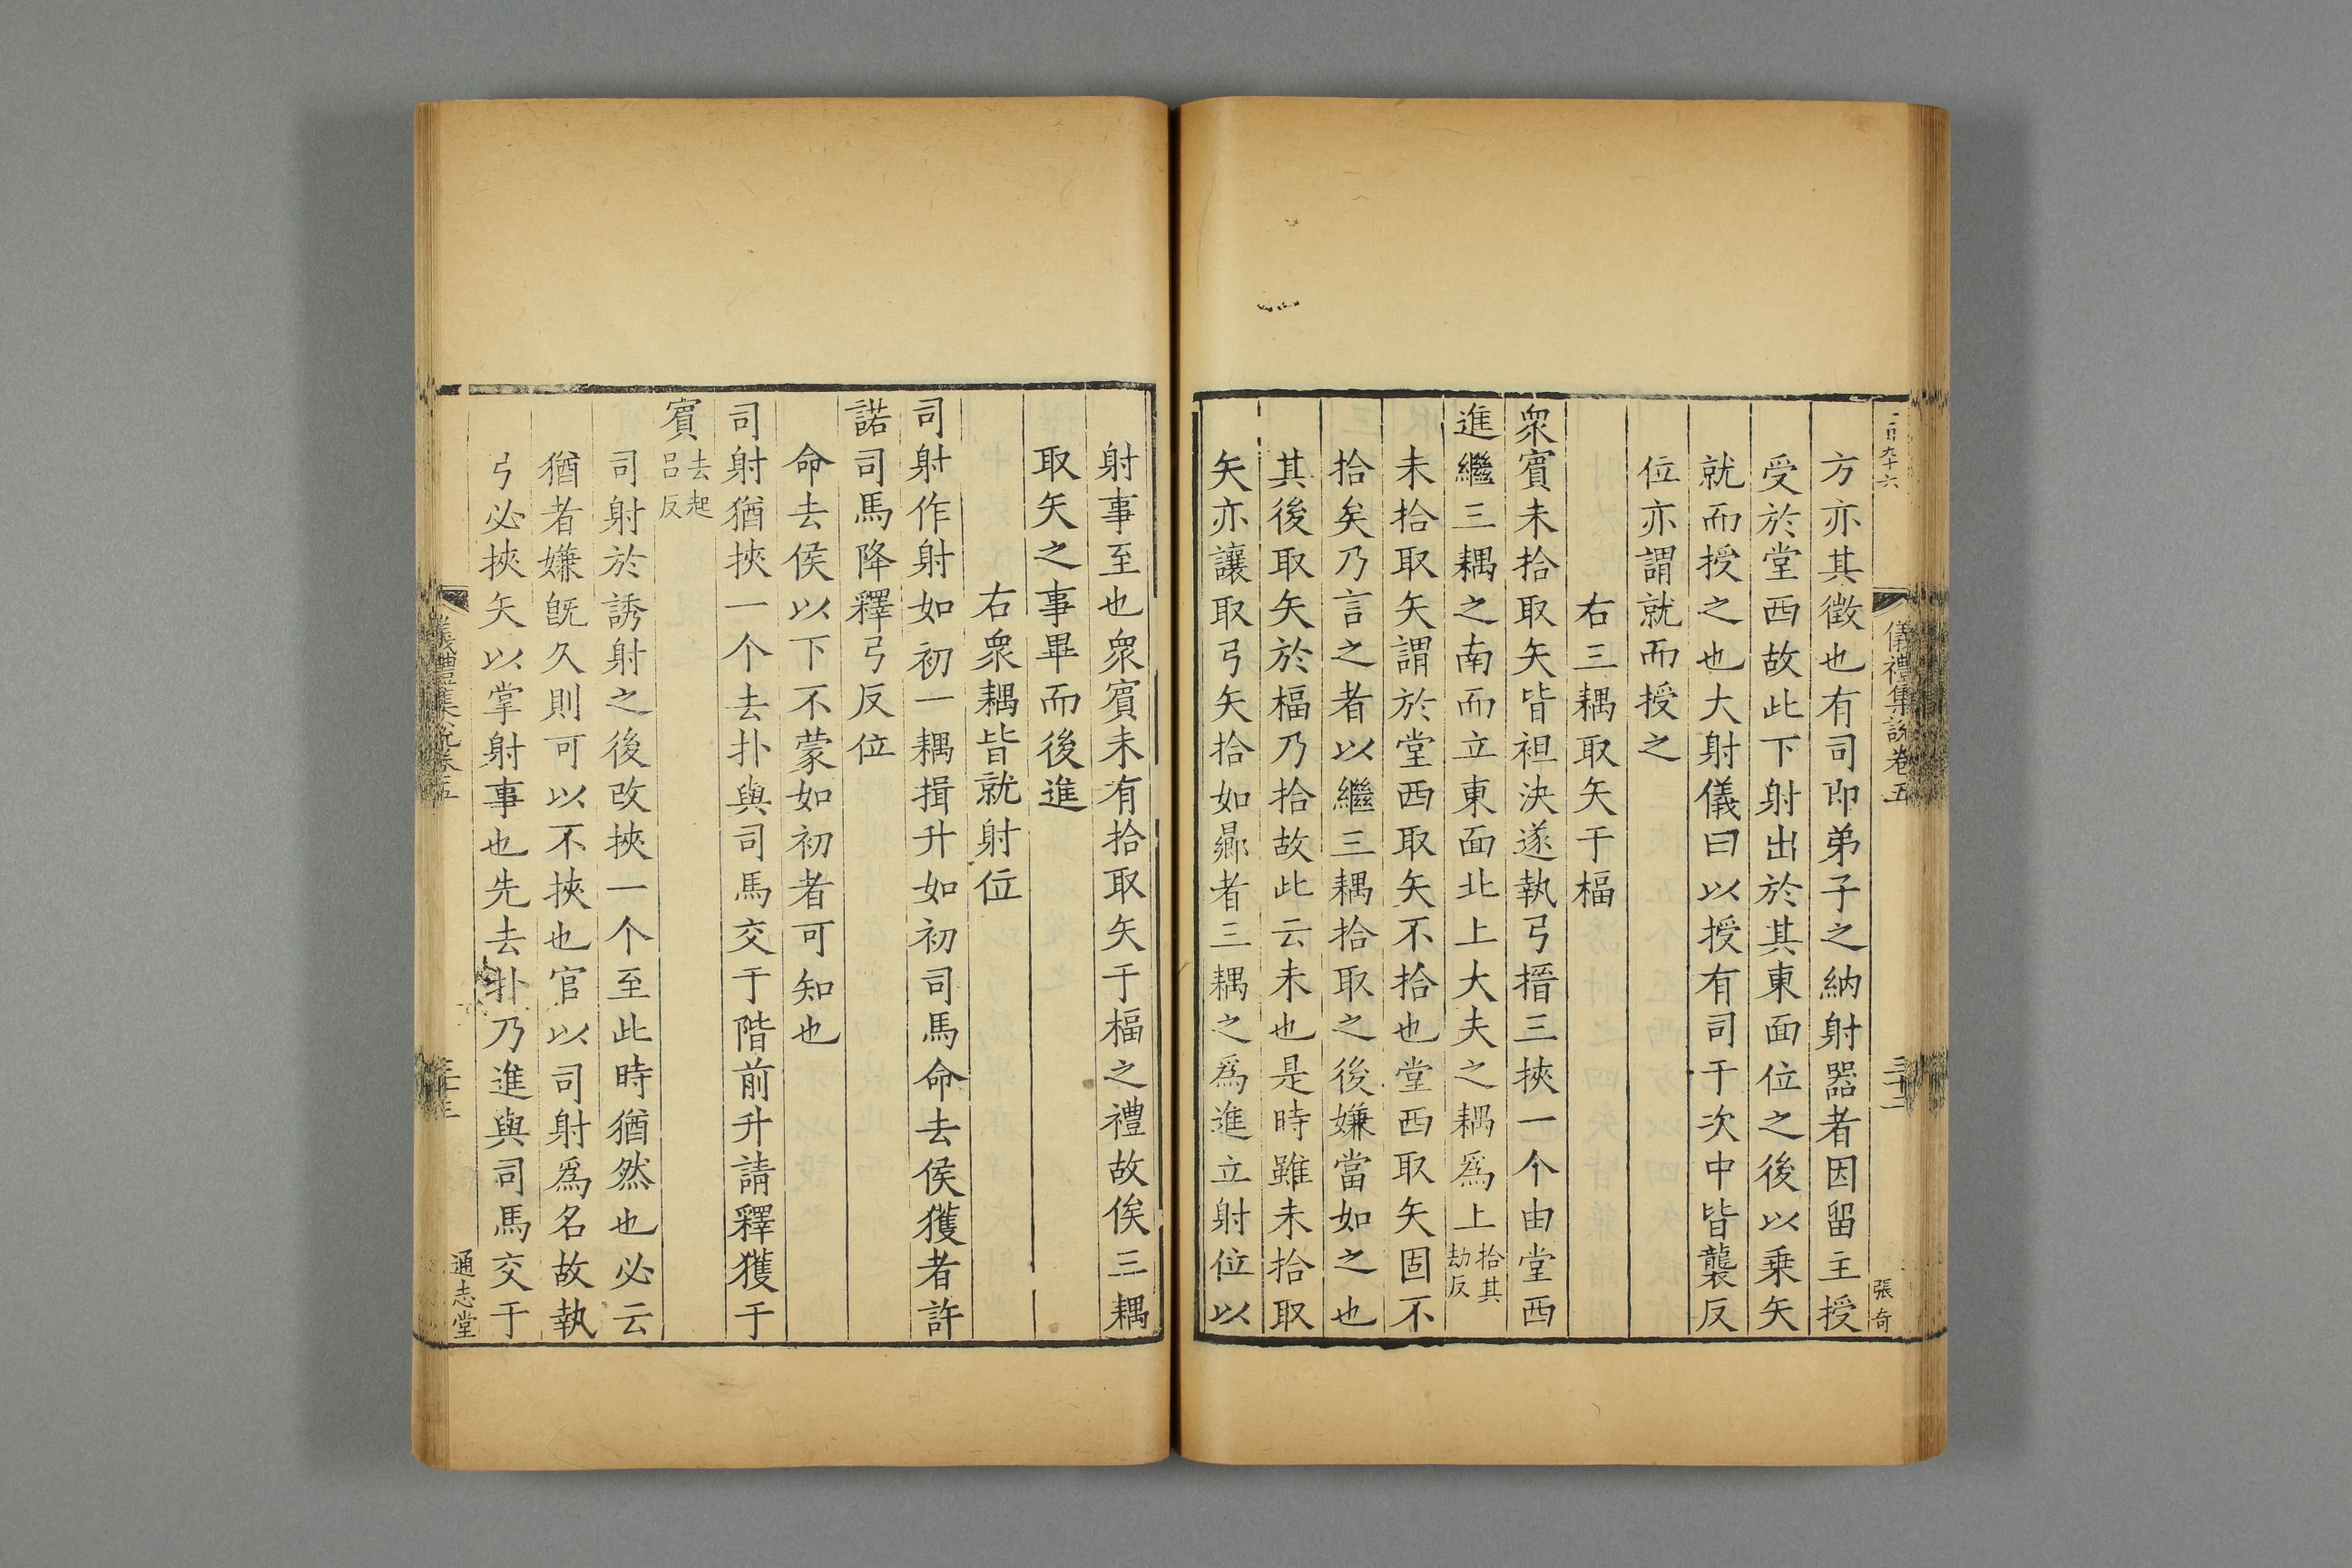 九十六
儀禮集説卷五
三十二
張奇
方亦其徵也有司即弟子之納射器者因留主授
受於堂西故此下射出於其東面位之後以乗矢
就而授之也大射儀曰以授有司于次中皆襲反
位亦謂就而授之
右三耦取矢于楅
衆賔未拾取矢皆袒決遂執弓搢三挾一个由堂西
進繼三耦之南而立東面北上大夫之耦爲上拾其劫反
未拾取矢謂於堂西取矢不拾也堂西取矢固不
拾矣乃言之者以繼三耦拾取之後嫌當如之也
其後取矢於楅乃拾故此云未也是時雖未拾取
矢亦讓取弓矢拾如曏者三耦之爲進立射位以
射事至也衆賔未有拾取矢于楅之禮故俟三耦
取矢之事畢而後進
右衆耦皆就射位
司射作射如初一耦揖升如初司馬命去侯獲者許
諾司馬降釋弓反位
命去侯以下不蒙如初者可知也
司射猶挾一个去扑與司馬交于階前升請釋獲于
賔去起吕反
司射於誘射之後改挾一个至此時猶然也必云
猶者嫌旣久則可以不挾也官以司射爲名故執
弓必挾矢以掌射事也先去扑乃進與司馬交于
儀禮集説卷五
通志堂